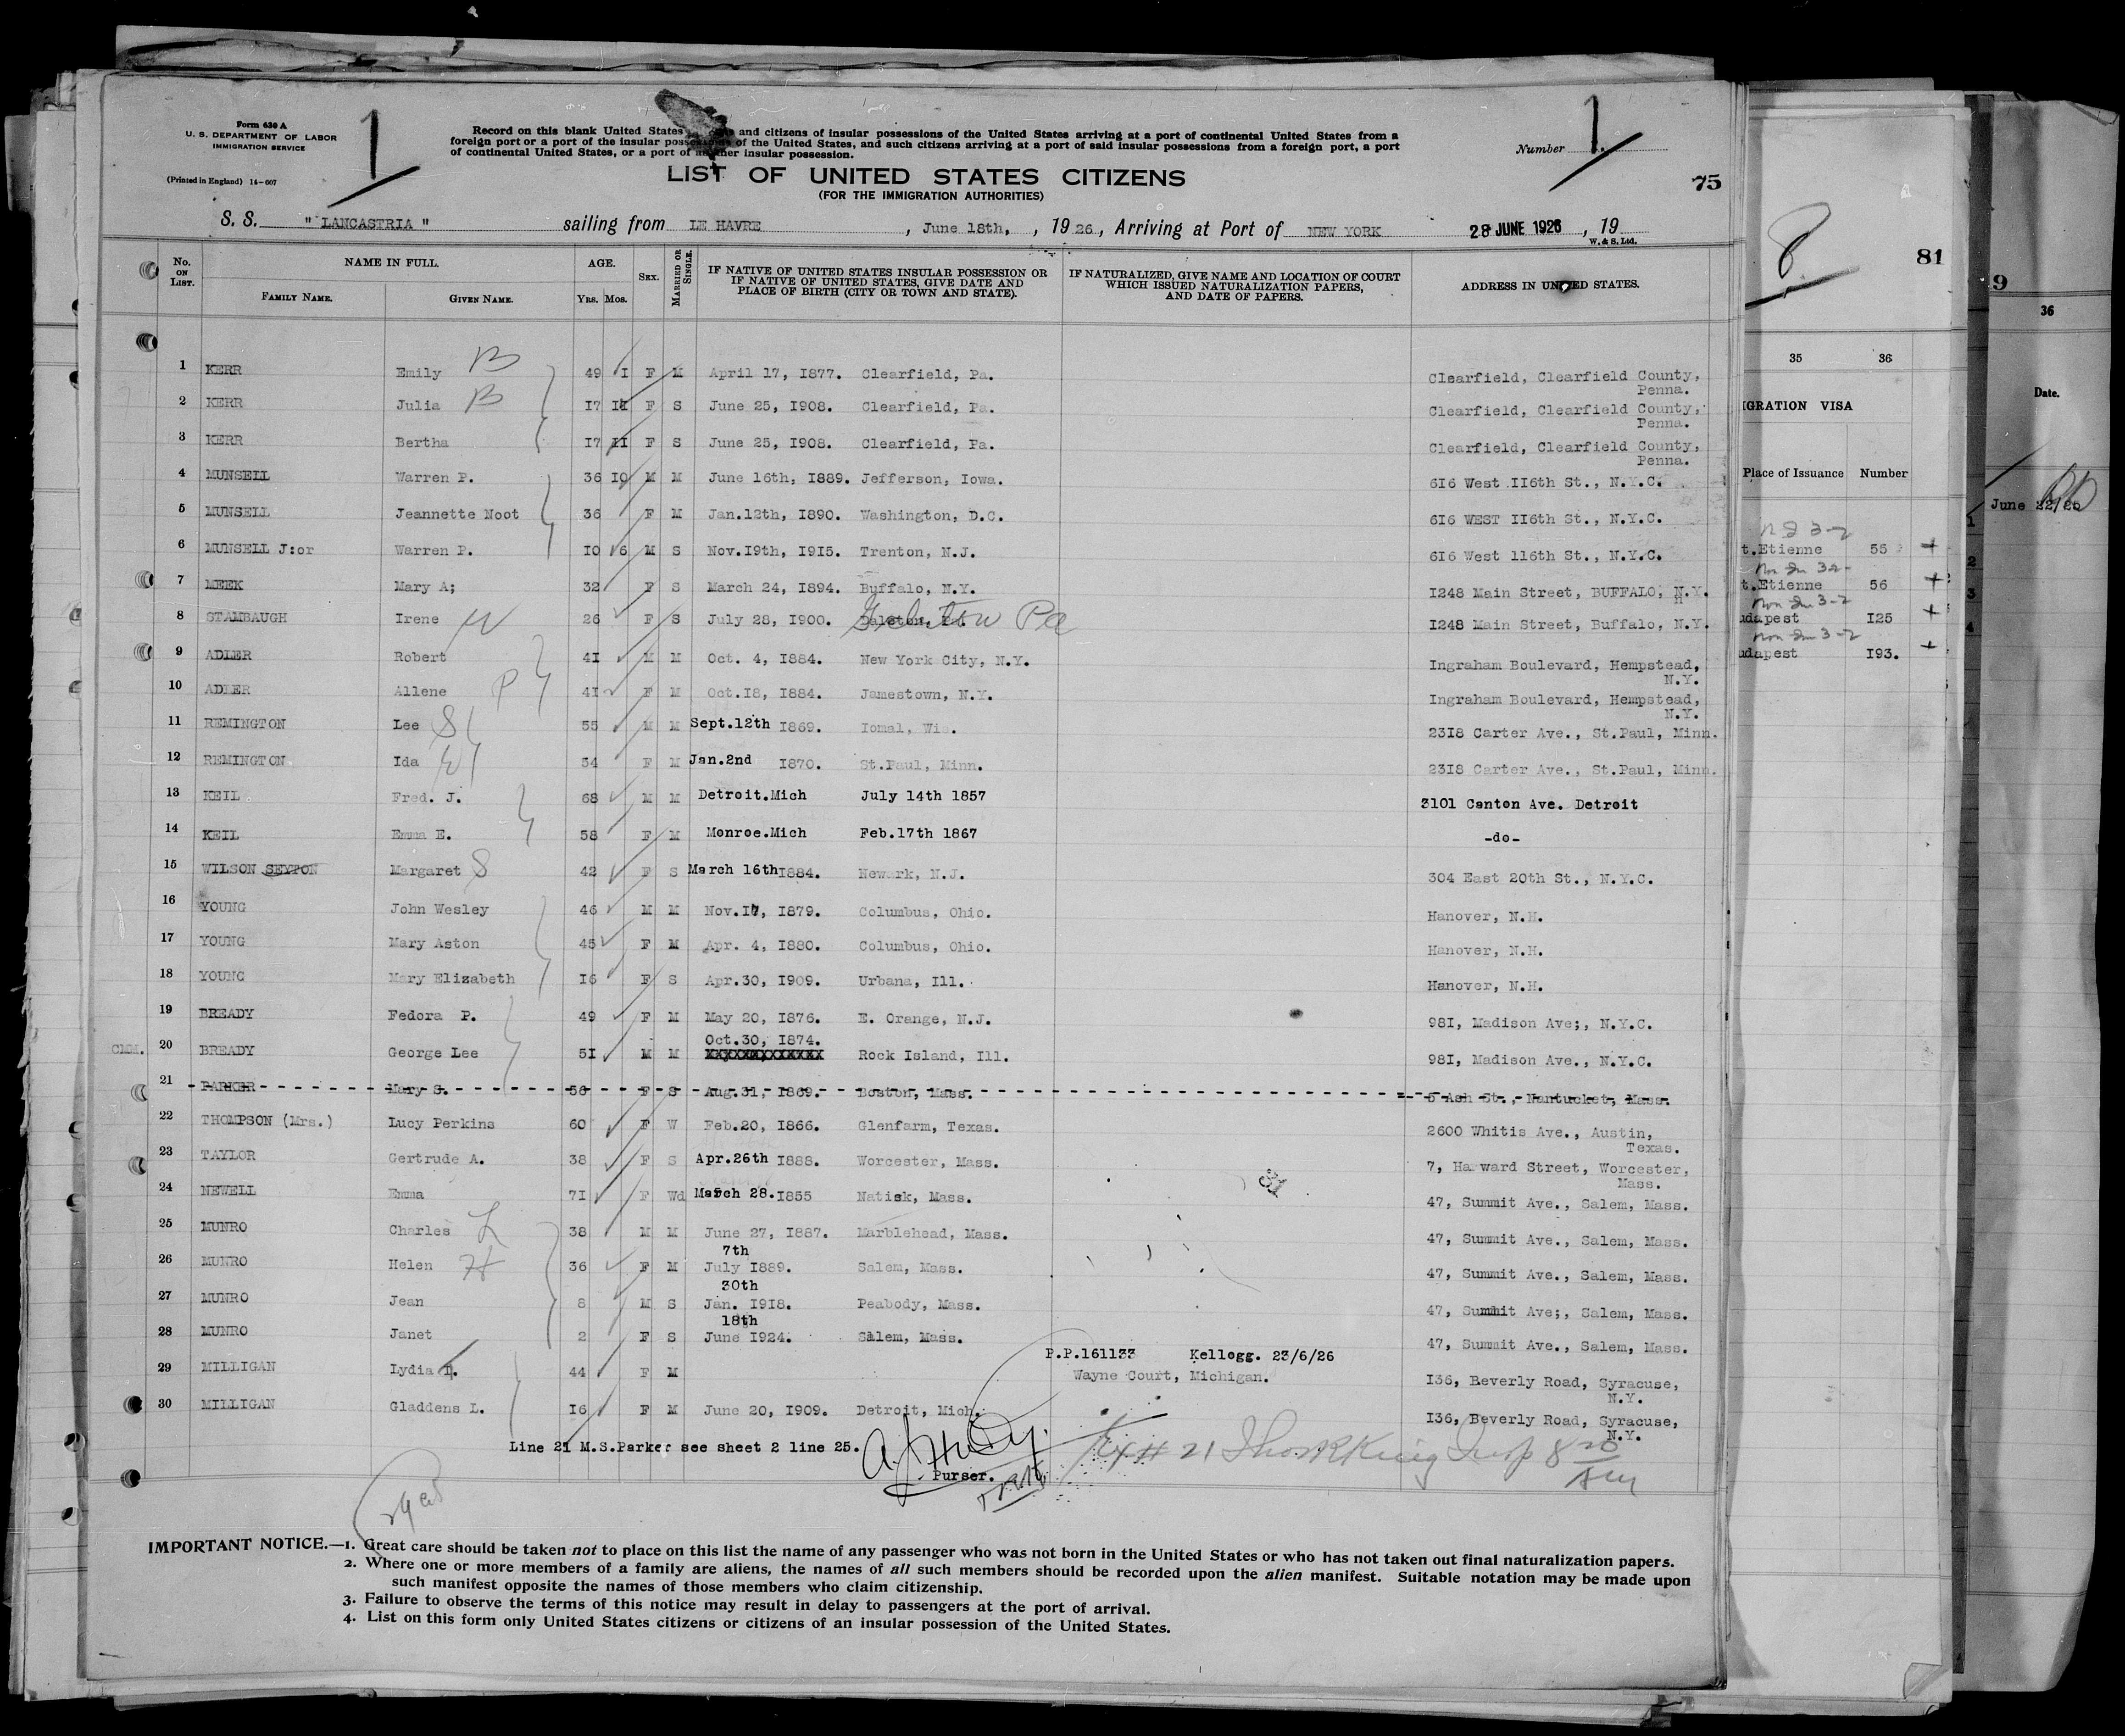 Form 630 A
U. S. DEPARTMENT OF LABOR
IMMIGRATION SERVICE
(Printed in England) 14-607
1
Record on this blank United States and citizens of insular possessions of the United States arriving at a port of continental United States from a
foreign port or a port of the insular possessions of the United States, and such citizens arriving at a port of said insular possessions from a foreign port, a port
of continental United States, or a port of another insular possession.
Number 1.
LIST OF UNITED STATES CITIZENS
(FOR THE IMMIGRATION AUTHORITIES)
75
S. S. " LANCASTRIA " sailing from LE HAVRE , June 18th, , 1926, Arriving at Port of NEW YORK 28 JUNE 1926 , 19
W. & S. Ltd.
No. ON LIST. NAME IN FULL. FAMILY NAME. GIVEN NAME. AGE. Yrs. Mos. SEX. MARRIED OR SINGLE. IF NATIVE OF UNITED STATES INSULAR POSSESSION OR IF NATIVE OF UNITED STATES, GIVE DATE AND PLACE OF BIRTH (CITY OR TOWN AND STATE). IF NATURALIZED, GIVE NAME AND LOCATION OF COURT WHICH ISSUED NATURALIZATION PAPERS, AND DATE OF PAPERS. ADDRESS IN UNITED STATES.
1 KERR Emily B 49 I F M April 17, I877. Clearfield, Pa. Clearfield, Clearfield County, Penna.
2 KERR Julia B I7 II F S June 25, I908. Clearfield, Pa. Clearfield, Clearfield County, Penna.
3 KERR Bertha I7 II F S June 25, I908. Clearfield, Pa. Clearfield, Clearfield County, Penna.
4 MUNSELL Warren P. 36 IO M M June 16th, I889. Jefferson, Iowa. 6I6 West II6th St., N.Y.C.
5 MUNSELL Jeannette Noot 36 F M Jan.12th, I890. Washington, D.C. 6I6 WEST II6th St., N.Y.C.
6 MUNSELL J:or Warren P. IO 6 M S Nov.I9th, I915. Trenton, N.J. 6I6 West 116th St., N.Y.C.
7 MEEK Mary A; 32 F S March 24, I894. Buffalo, N.Y. I248 Main Street, BUFFALO, N.Y.
8 STAMBAUGH Irene W 26 F S July 28, I900. Galeton Pa I248 Main Street, Buffalo, N.Y.
9 ADLER Robert 4I M M Oct. 4, I884. New York City, N.Y. Ingraham Boulevard, Hempstead, N.Y.
10 ADLER Allene P 4I F M Oct.I8, I884. Jamestown, N.Y. Ingraham Boulevard, Hempstead, N.Y.
11 REMINGTON Lee S 55 M M Sept.12th I869. Iomal, Wis. 23I8 Carter Ave., St.Paul, Minn.
12 REMINGTON Ida W 54 F M Jan.2nd I870. St.Paul, Minn. 23I8 Carter Ave., St.Paul, Minn.
13 KEIL Fred. J. 68 M M Detroit.Mich July 14th 1857 3101 Canton Ave. Detroit
14 KEIL Emma E. 58 F M Monroe.Mich Feb.17th 1867 -do-
15 WILSON SEYTON Margaret S 42 F S March 16th I884. Newark, N.J. 304 East 20th St., N.Y.C.
16 YOUNG John Wesley 46 M M Nov.I7, I879. Columbus, Ohio. Hanover, N.H.
17 YOUNG Mary Aston 45 F M Apr. 4, I880. Columbus, Ohio. Hanover, N.H.
18 YOUNG Mary Elizabeth I6 F S Apr.30, I909. Urbana, Ill. Hanover, N.H.
19 BREADY Fedora P. 49 F M May 20, I876. E. Orange, N.J. 98I, Madison Ave;, N.Y.C.
20 BREADY George Lee 5I M M Oct.30, I874. Rock Island, Ill. 98I, Madison Ave., N.Y.C.
21 PARKER Mary S. 56 F S Aug.31, I869. Boston, Mass. 5 Ash St., Nantucket, Mass.
22 THOMPSON (Mrs.) Lucy Perkins 60 F W Feb.20, I866. Glenfarm, Texas. 2600 Whitis Ave., Austin, Texas.
23 TAYLOR Gertrude A. 38 F S Apr.26th I888. Worcester, Mass. 7, Harward Street, Worcester, Mass.
24 NEWELL Emma 7I F Wd March 28. I855 Natick, Mass. 47, Summit Ave., Salem, Mass.
25 MUNRO Charles L 38 M M June 27, I887. Marblehead, Mass. 47, Summit Ave., Salem, Mass.
26 MUNRO Helen H 36 F M 7th July I889. Salem, Mass. 47, Summit Ave., Salem, Mass.
27 MUNRO Jean 8 M S 30th Jan. I9I8. Peabody, Mass. 47, Summit Ave;, Salem, Mass.
28 MUNRO Janet 2 F S 18th June I924. Salem, Mass. 47, Summit Ave., Salem, Mass.
29 MILLIGAN Lydia L. 44 F M P.P.161133 Kellogg. 23/6/26 Wayne Court, Michigan. I36, Beverly Road, Syracuse, N.Y.
30 MILLIGAN Gladdens L. I6 F M June 20, I909. Detroit, Mich. I36, Beverly Road, Syracuse, N.Y.
Line 21 M.S.Parker see sheet 2 line 25.
Purser.
IMPORTANT NOTICE.—1. Great care should be taken not to place on this list the name of any passenger who was not born in the United States or who has not taken out final naturalization papers.
2. Where one or more members of a family are aliens, the names of all such members should be recorded upon the alien manifest. Suitable notation may be made upon
such manifest opposite the names of those members who claim citizenship.
3. Failure to observe the terms of this notice may result in delay to passengers at the port of arrival.
4. List on this form only United States citizens or citizens of an insular possession of the United States.
8
81
35 36
IGRATION VISA
Place of Issuance Number
t.Etienne 55
t.Etienne 56
udapest I25
udapest I93.
9
36
Date.
June 22/26